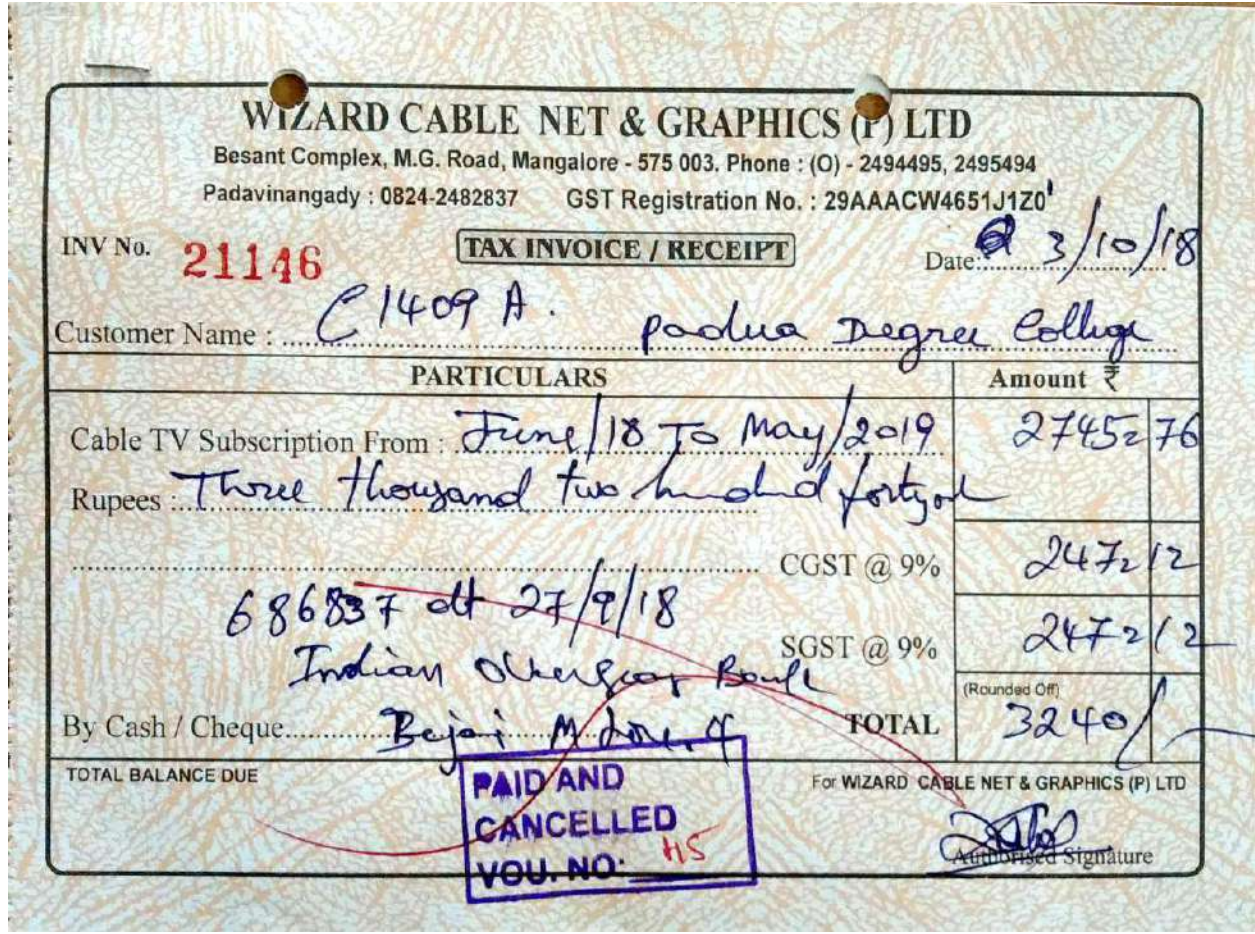 WIZARD CABLE NET & GRAPHICS (P) LTD
Besant Complex, M.G. Road, Mangalore - 575 003. Phone : (O) - 2494495, 2495494
Padavinangady : 0824-2482837 GST Registration No. : 29AAACW4651J1Z0
INV No. 21146 TAX INVOICE / RECEIPT Date: 3/10/18
Customer Name : C 1409 A. Padua Degree College
PARTICULARS Amount ₹
Cable TV Subscription From : June/18 To May/2019 2745 76
Rupees : Three thousand two hundred forty
CGST @ 9% 247 12
686837 dt 27/9/18
SGST @ 9% 247 12
Indian Overseas Bank
(Rounded Off)
By Cash / Cheque Bejai M'lore. 4 TOTAL 3240/
TOTAL BALANCE DUE For WIZARD CABLE NET & GRAPHICS (P) LTD
PAID AND
CANCELLED
VOU. NO: 45
Authorised Signature